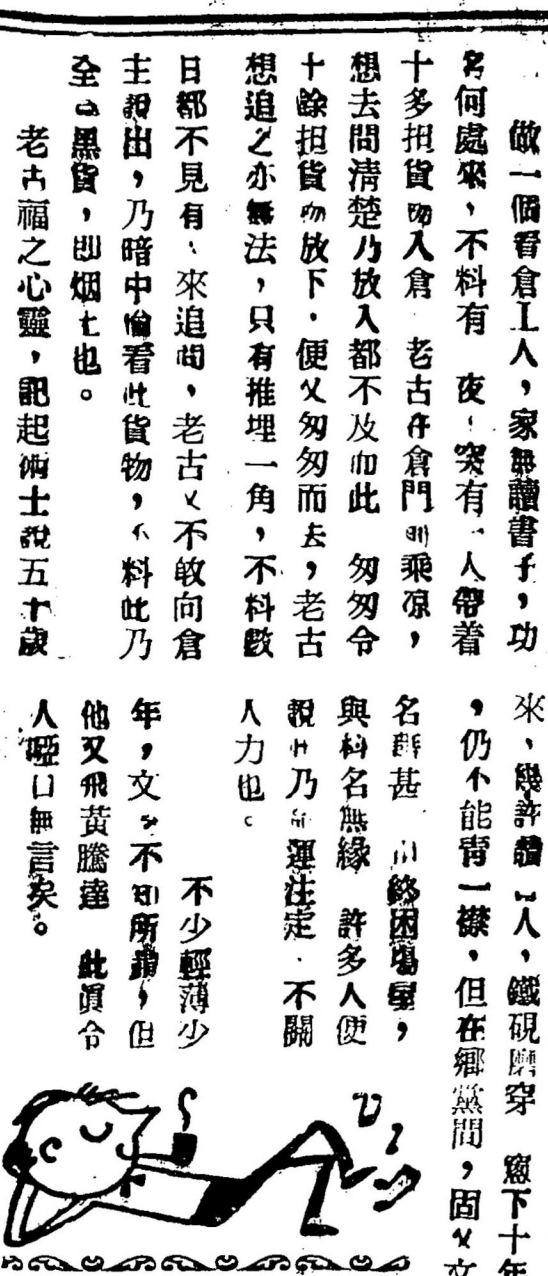 做一個看倉工人，家無讀書子，功
名何處來，不料有 夜，突有一人帶着
十多担貨物入倉 老古在倉門 乘凉，
想去問清楚乃放入都不及 此 匆匆令
十餘担貨物放下，便又匆匆而去，老古
想追之亦無法，只有推埋一角，不料數
日都不見有 來追問，老古又不敢向倉
主說出，乃暗中偷看此貨物，不料此乃
全 黑貨，即烟土也。
老古福之心靈，記起術士說五十歲
來，幾許讀 人，鐵硯磨穿 窻下十年
，仍不能靑一襟，但在鄉黨間，固 文
名 甚 終困塲屋，
與科名無緣 許多人便
說 乃 運注定，不關
人力也。
不少輕薄少
年，文 不知所謂，但
他又飛黃騰達 此眞令
人啞口無言矣。